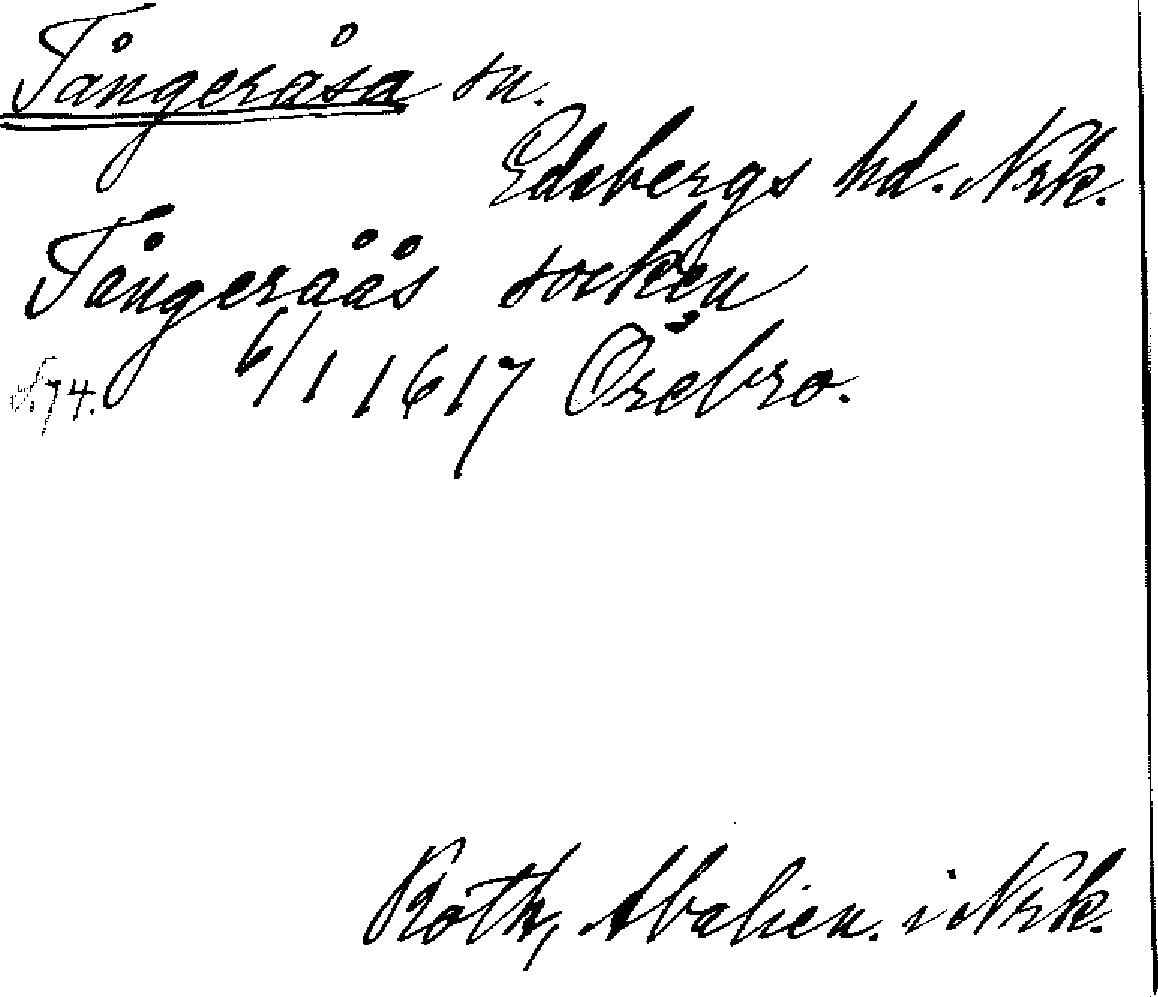 Tångeråsa sn.
Edsbergs hd. Nrk.
Tångeråås socken
6/1 1617 Örebro.
74.
Roth, Abalien. i Nrk.